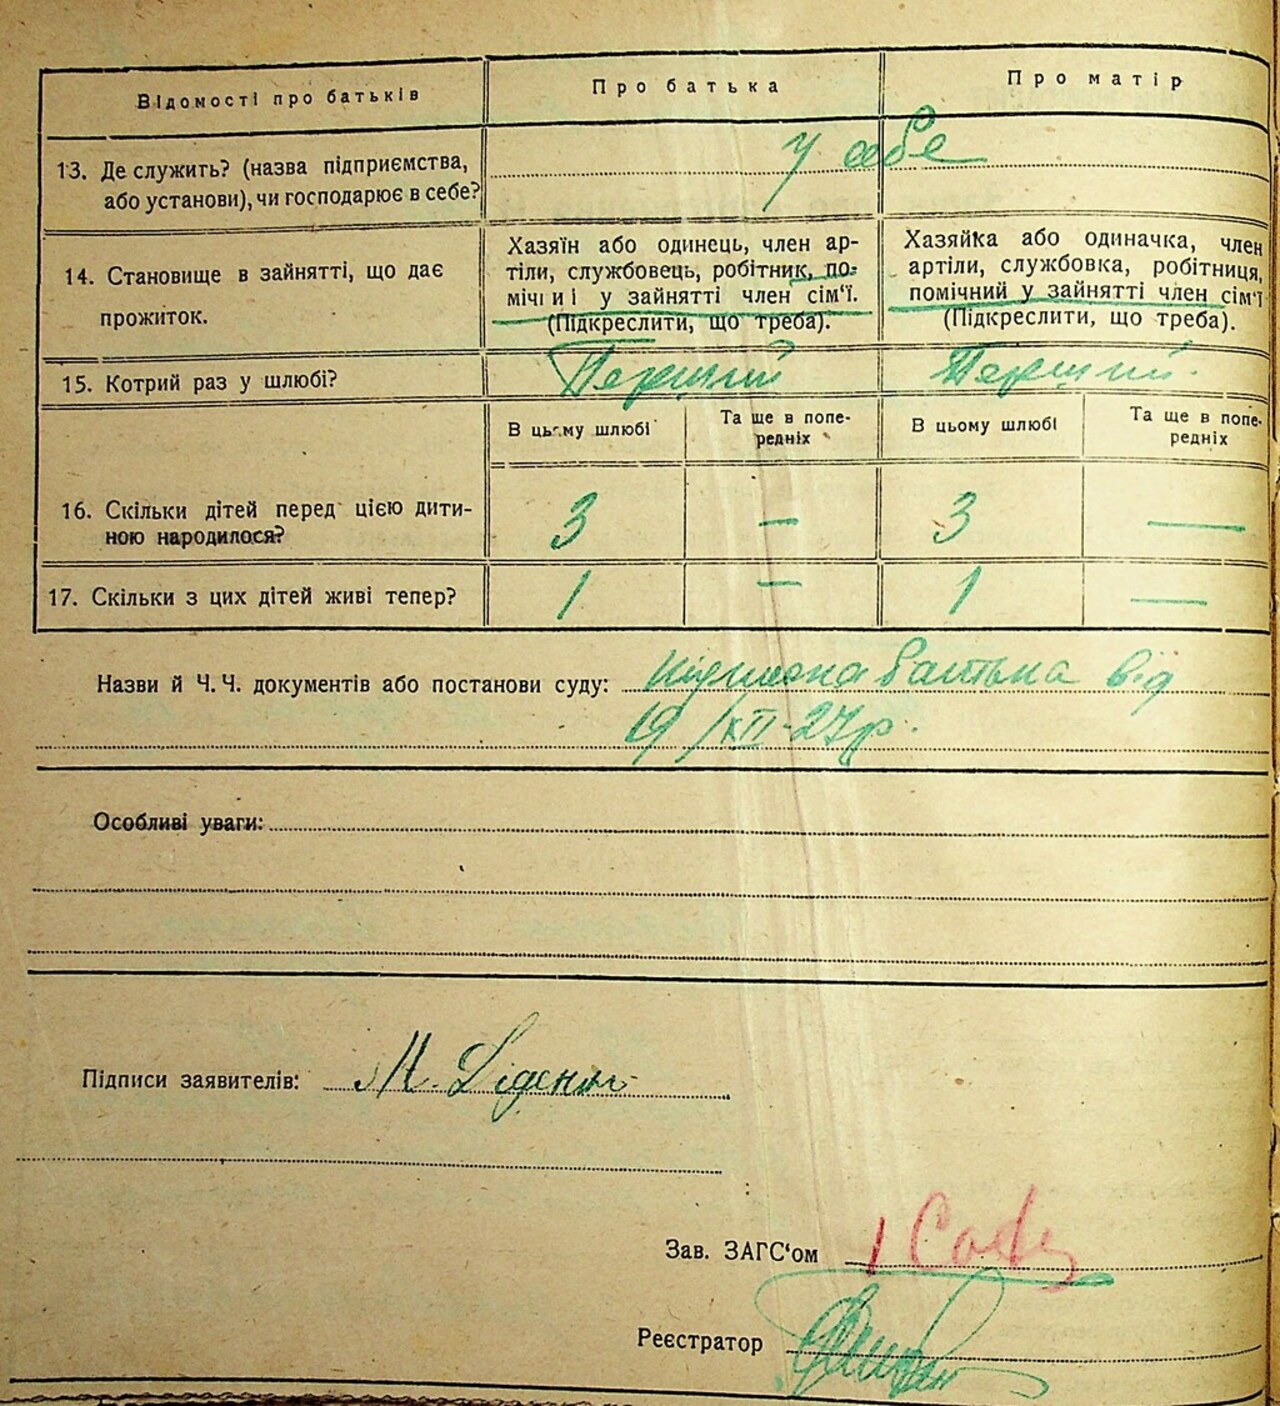 Відомості про батьків
Про батька
Про матір
13. Де служить? (назва підприємства,
або установи), чи господарює в себе?
у себе
14. Становище в зайнятті, що дає
прожиток.
Хазяїн або одинець, член ар-
тіли, службовець, робітник, по-
мічний у зайнятті член сім'ї.
(Підкреслити, що треба).
Хазяйка або одиначка, член
артіли, службовка, робітниця,
помічний у зайнятті член сім'ї
(Підкреслити, що треба).
15. Котрий раз у шлюбі?
Перший
Перший.
В цьому шлюбі
Та ще в попе-
редніх
В цьому шлюбі
Та ще в попе-
редніх
16. Скільки дітей перед цією дити-
ною народилося?
3
—
3
—
17. Скільки з цих дітей живі тепер?
1
—
1
—
Назви й Ч. Ч. документів або постанови суду:
батька від
19/XII-27р.
Особливі уваги:
Підписи заявителів:
М.
Зав. ЗАГС'ом
Реєстратор